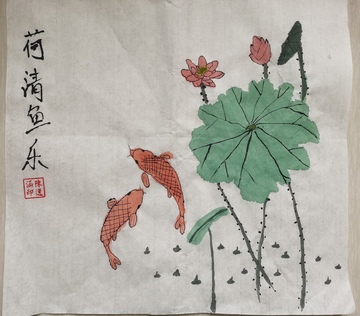 荷清鱼乐